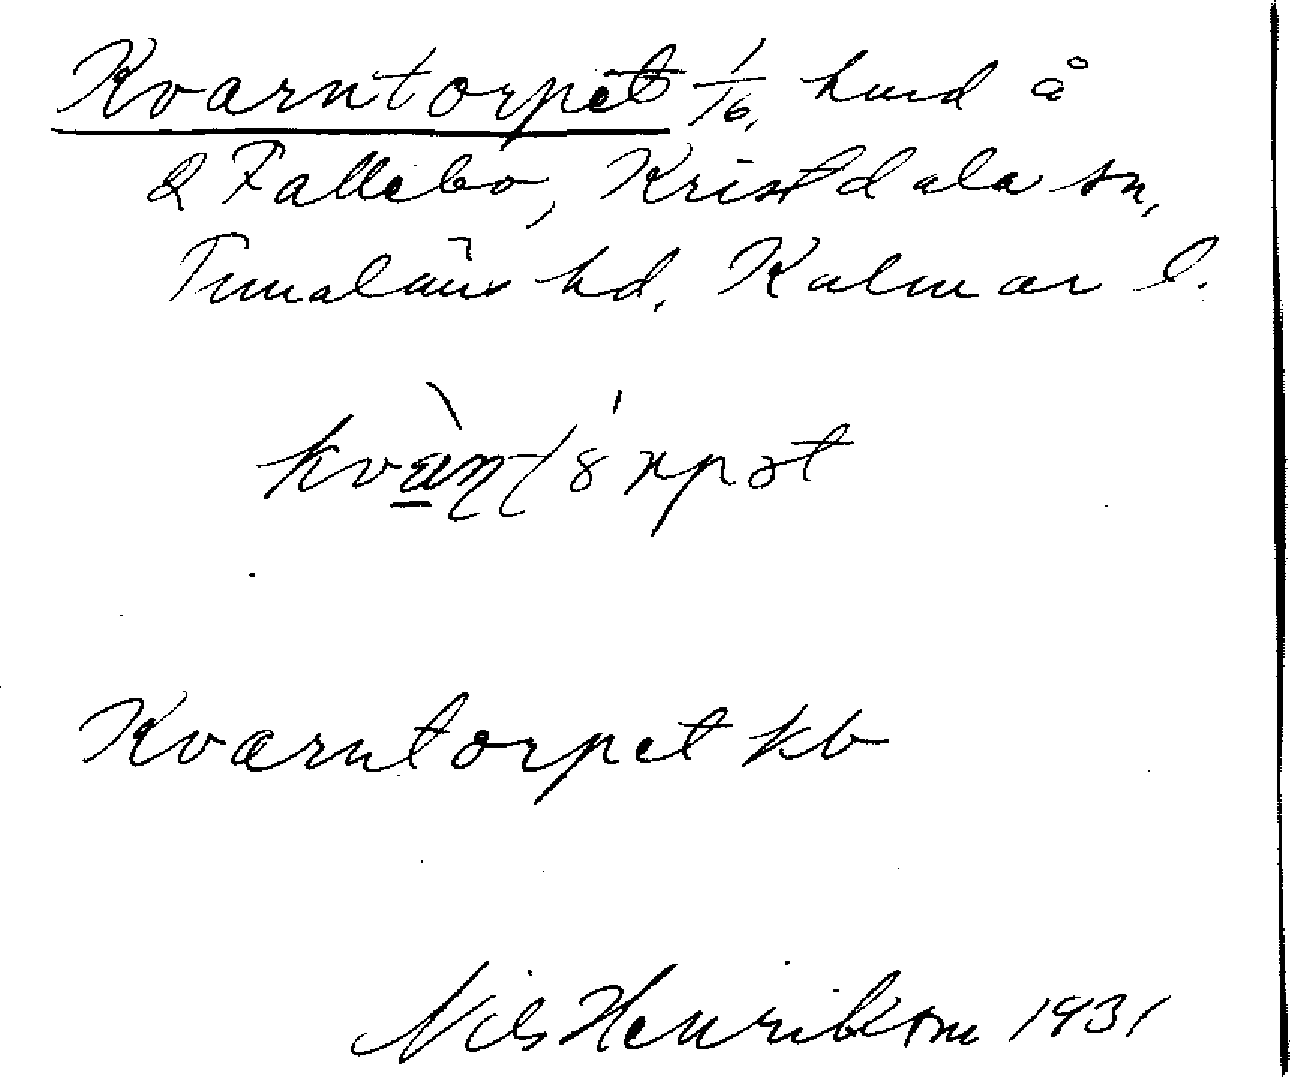 Kvarntorpet 1/16, hvd å
2 Fallebo, Kristdala sn,
Tunaläns hd. Kalmar l.
Kvarntorpet kb
Nils Henrikson 1931